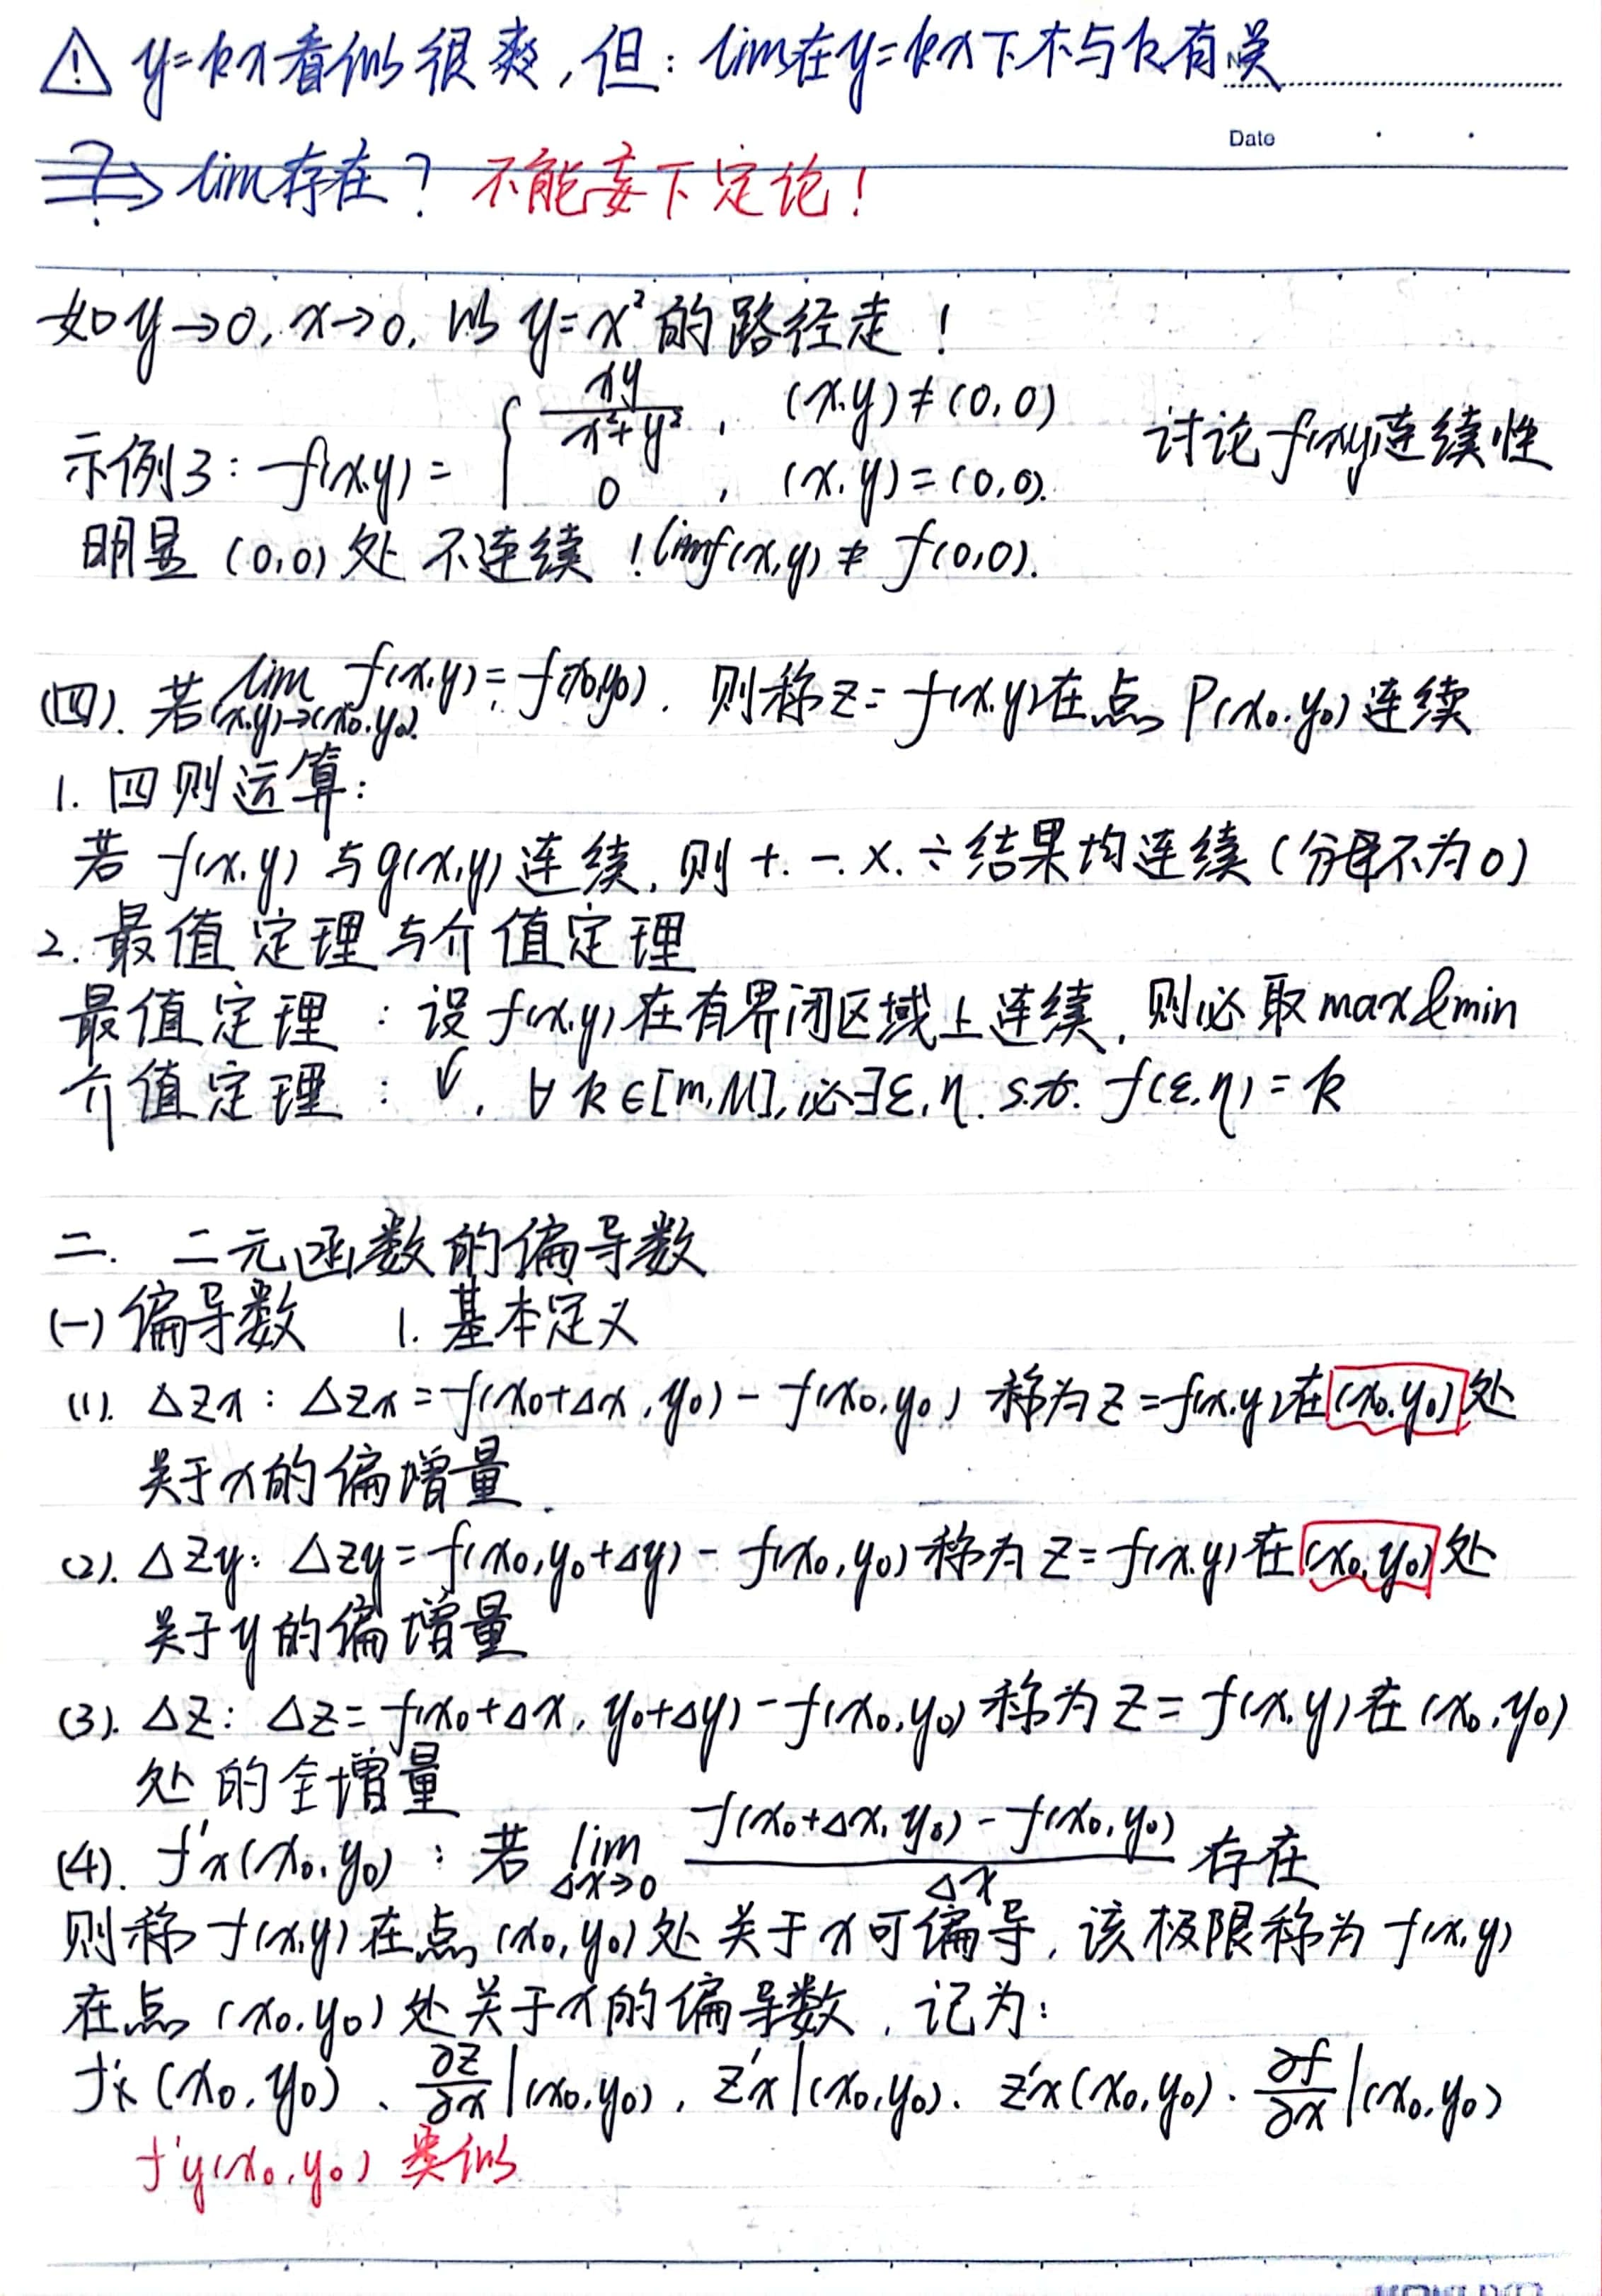 ⚠ y=kx看似很爽,但: lim在y=kx下不与k有关
Date
⇒? lim存在? 不能妄下定论!
如y→0, x→0, 以 y=x²的路径走!
示例3: f(x,y) = { xy/(x²+y²), (x,y)≠(0,0) 讨论f(x,y)连续性
0, (x,y)=(0,0).
明显 (0,0) 处 不连续! limf(x,y) ≠ f(0,0).
(四). 若 lim (x,y)→(x₀,y₀) f(x,y) = f(x₀,y₀). 则称z=f(x,y)在点P(x₀,y₀)连续
1. 四则运算:
若 f(x,y) 与g(x,y)连续, 则 +. -. ×. ÷结果均连续(分母不为0)
2. 最值定理与介值定理
最值定理: 设f(x,y)在有界闭区域上连续, 则必取max&min
介值定理: √, ∀k∈[m,M], 必∃ε,η. s.t. f(ε,η)=k
二. 二元函数的偏导数
(一) 偏导数 1. 基本定义
(1). Δzx: Δzx=f(x₀+Δx,y₀)-f(x₀,y₀) 称为z=f(x,y)在(x₀,y₀)处
关于x的偏增量.
(2). Δzy: Δzy=f(x₀,y₀+Δy)-f(x₀,y₀)称为z=f(x,y)在(x₀,y₀)处
关于y的偏增量
(3). Δz: Δz=f(x₀+Δx,y₀+Δy)-f(x₀,y₀)称为z=f(x,y)在(x₀,y₀)
处的全增量
(4). f'x(x₀,y₀): 若 lim Δx→0 (f(x₀+Δx,y₀)-f(x₀,y₀))/Δx 存在
则称f(x,y)在点(x₀,y₀)处关于x可偏导, 该极限称为f(x,y)
在点(x₀,y₀)处关于x的偏导数, 记为:
f'x(x₀,y₀)、∂z/∂x|(x₀,y₀), z'x|(x₀,y₀). z'x(x₀,y₀). ∂f/∂x|(x₀,y₀)
f'y(x₀,y₀) 类似